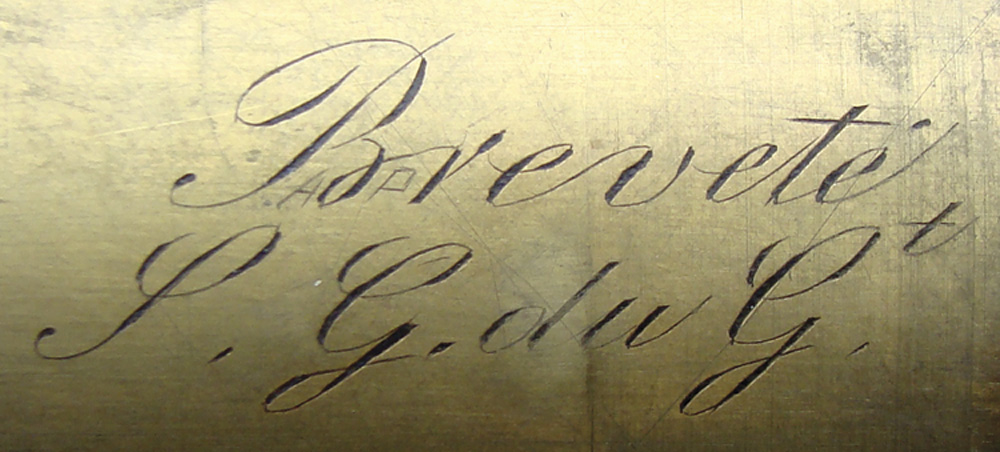 Breveté
S. G. du G.t